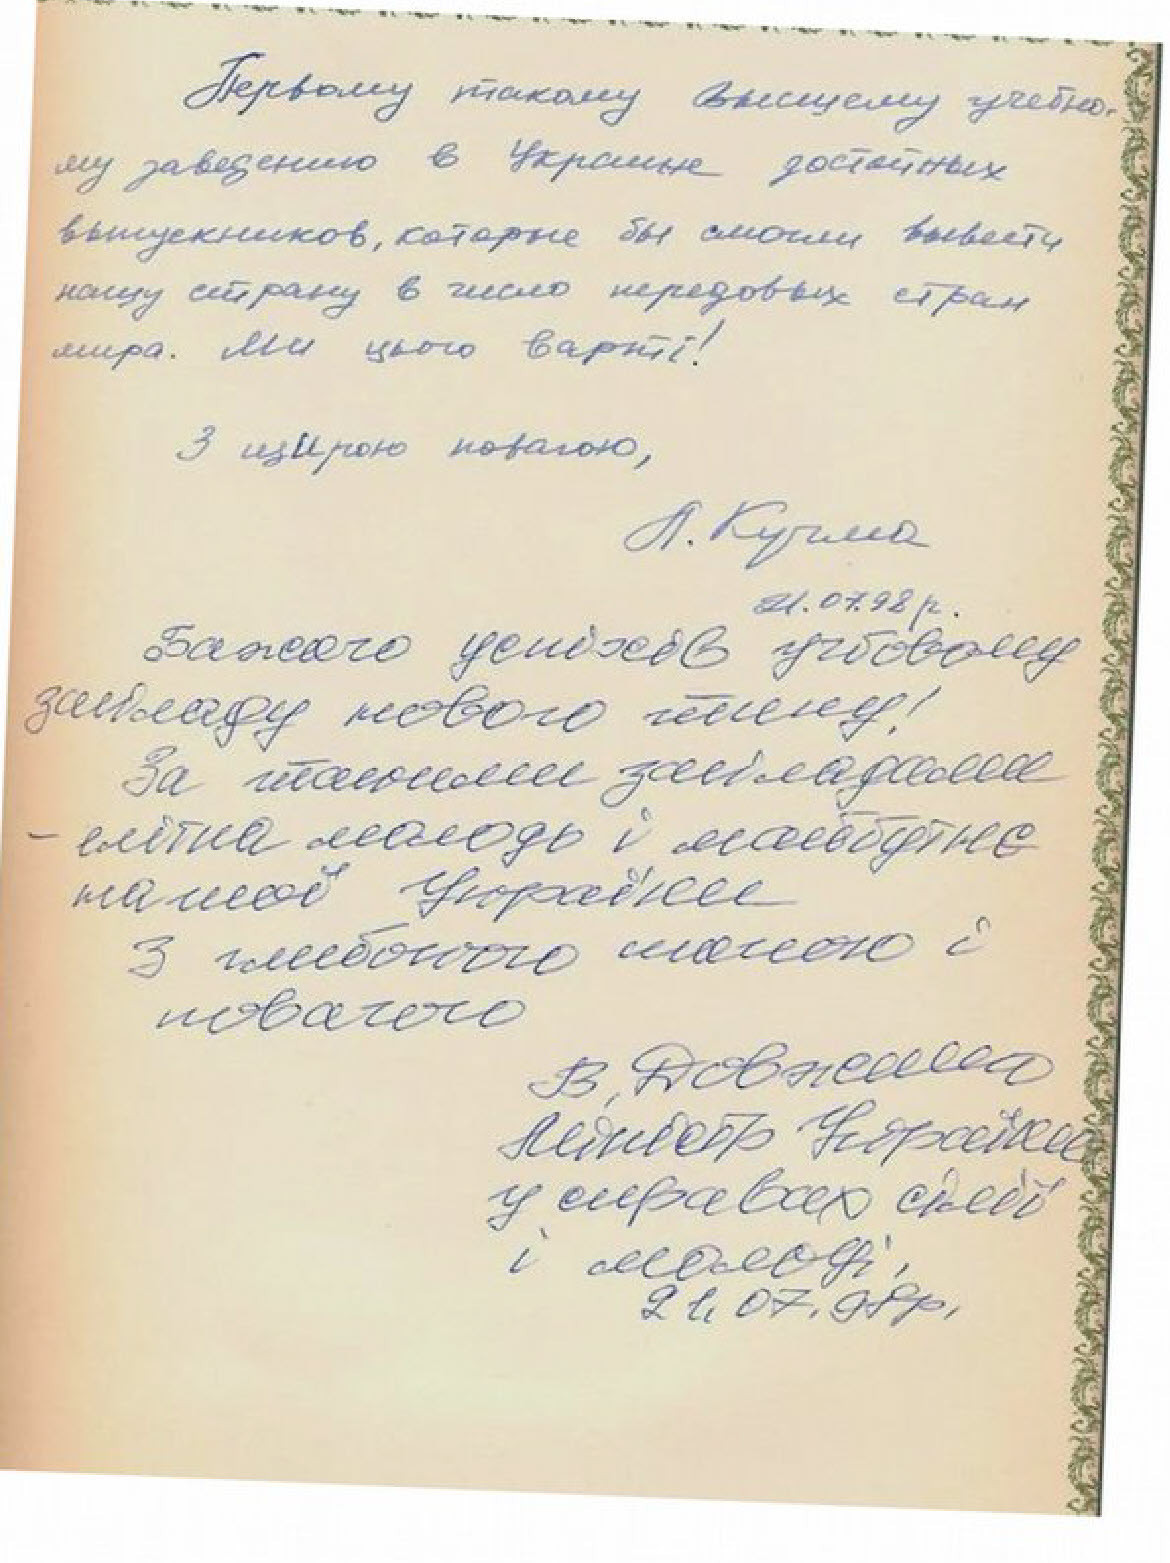 Первому такому высшему учебно-
му заведению в Украине достойных
выпускников, которые бы смогли вывести
нашу страну в число передовых стран
мира. Ми цього варті!
З щирою повагою,
Л. Кучма
21.07.98 р.
Бажаю успіхів учбовому
закладу нового типу!
За такими закладами
- елітна молодь і майбутнє
нашої України
З глибокою шаною і
повагою
В. Довженко
Міністр України
у справах сім'ї
і молоді,
21.07.98р.